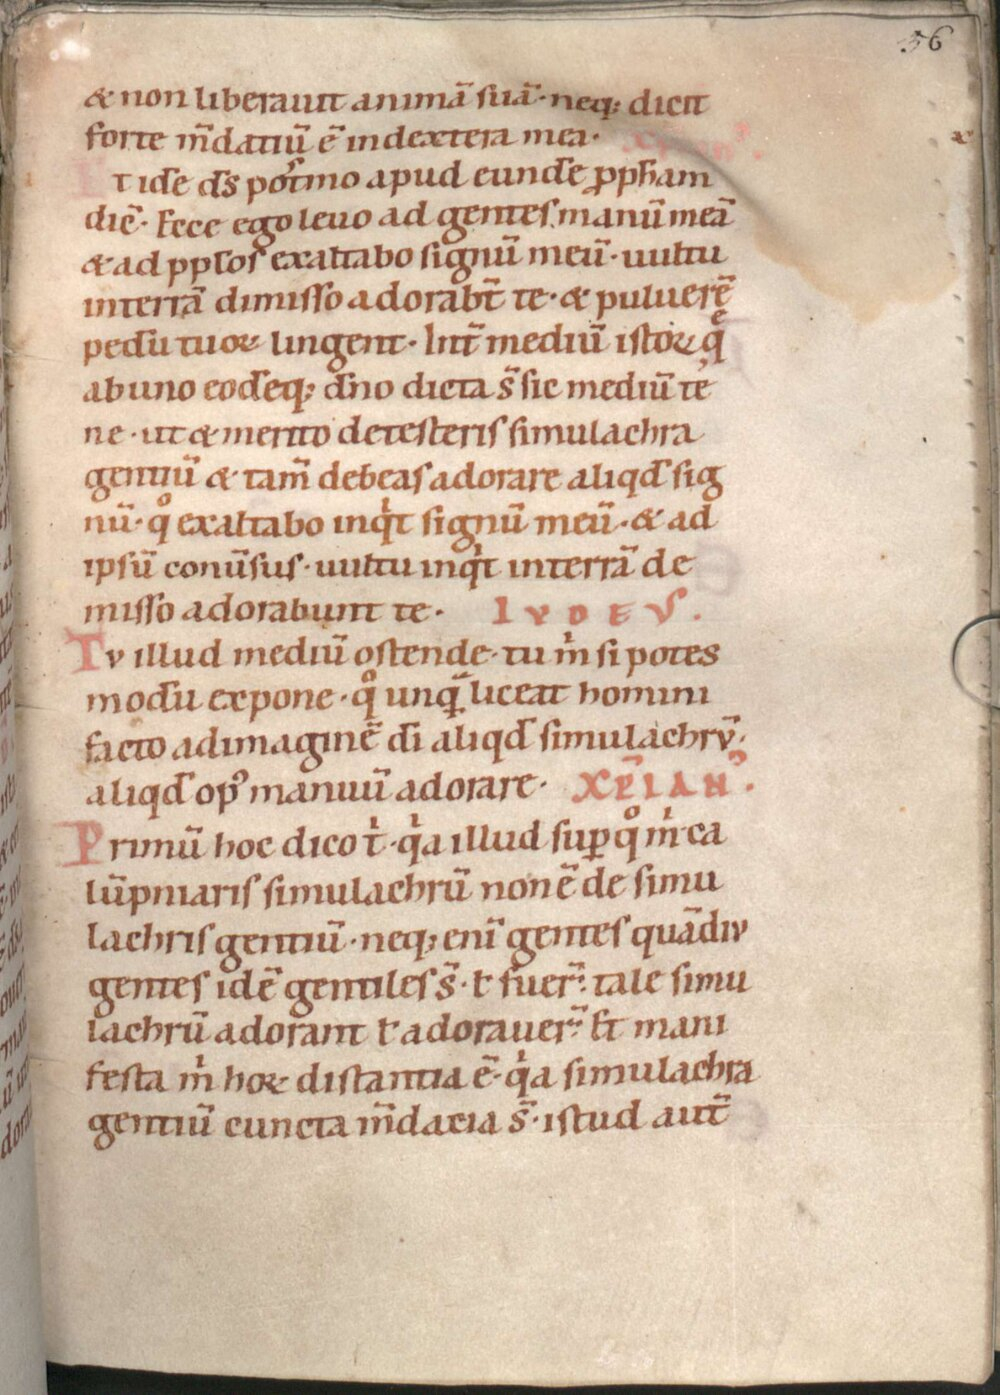 56
& non liberauit animā suā· neq; dicit
forte m̄datiū ē in dextera mea· XPIANꝰ.
Et idē d̄s potͥmo apud eundē ꝓph̄am
diē· Ecce ego leuo ad gentes manū meā
& ad ppl̄os exaltabo signū meū· uultu
in terrā dimisso adorab̄t te· & puluerē
pedū tuoꝝ lingent· Int̄ mediū istoꝝ qͤ
ab uno eodēq; dn̄o dicta s̄ sic mediū te
ne· ut & merito detesteris simulachra
gentiū & tam̄ debeas adorare aliqd̄ sig
nū· qͦ exaltabo inqͥt signū meū· & ad
ipsū conūsus· uultu inqͥt in terrā de
misso adorabunt te· IVDEVS.
Tv illud mediū ostende· tu mͥ si potes
modū expone· qͦ unqͣ̄ liceat homini
facto ad imaginē dī aliqd̄ simulachrv̄·
aliqd̄ opꝰ manuū adorare· XP̄IANꝰ.
Primū hoc dico tͥ· qͥa illud suꝑ qͦ mͥ ca
lūpniaris simulachrū non ē de simu
lachris gentiū· neq; eni gentes quādiv
gentes idē gentiles s̄· ł fuer̄· tale simu
lachrū adorant ł adorauer̄· Et mani
festa mͥ hoꝝ distantia ē· qͥa simulachra
gentiū cuncta m̄dacia s̄· istud aut̄